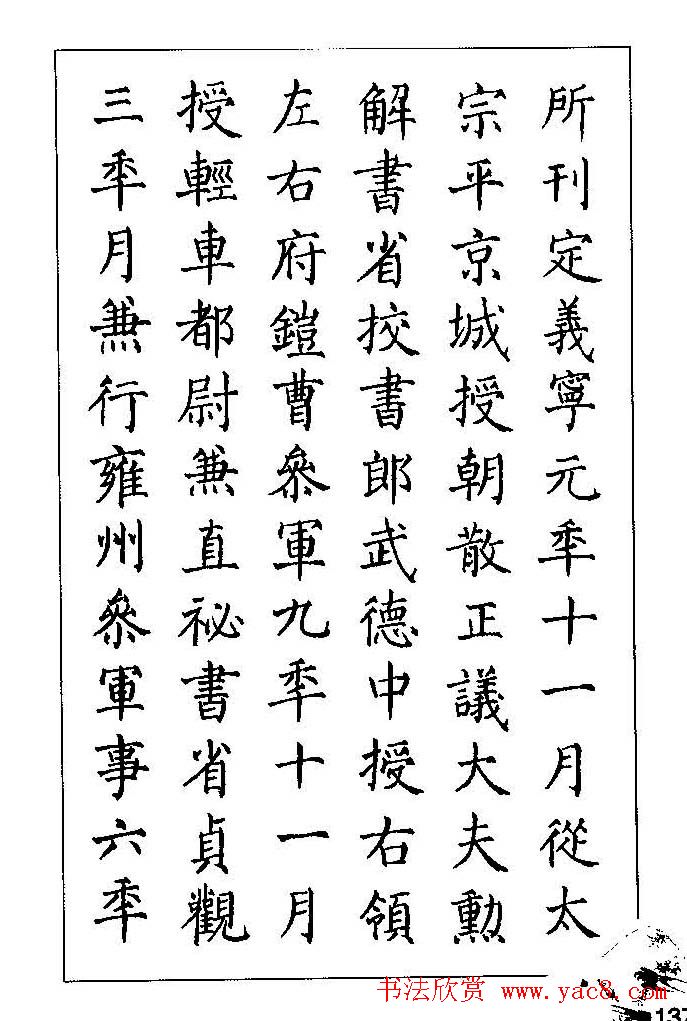 所刊定義寧元秊十一月從太
宗平京城授朝散正議大夫勲
解書省挍書郎武德中授右領
左右府鎧曹叅軍九秊十一月
授輕車都尉兼直祕書省貞觀
三秊月兼行雍州叅軍事六秊
书法欣赏 www.yac8.com
137